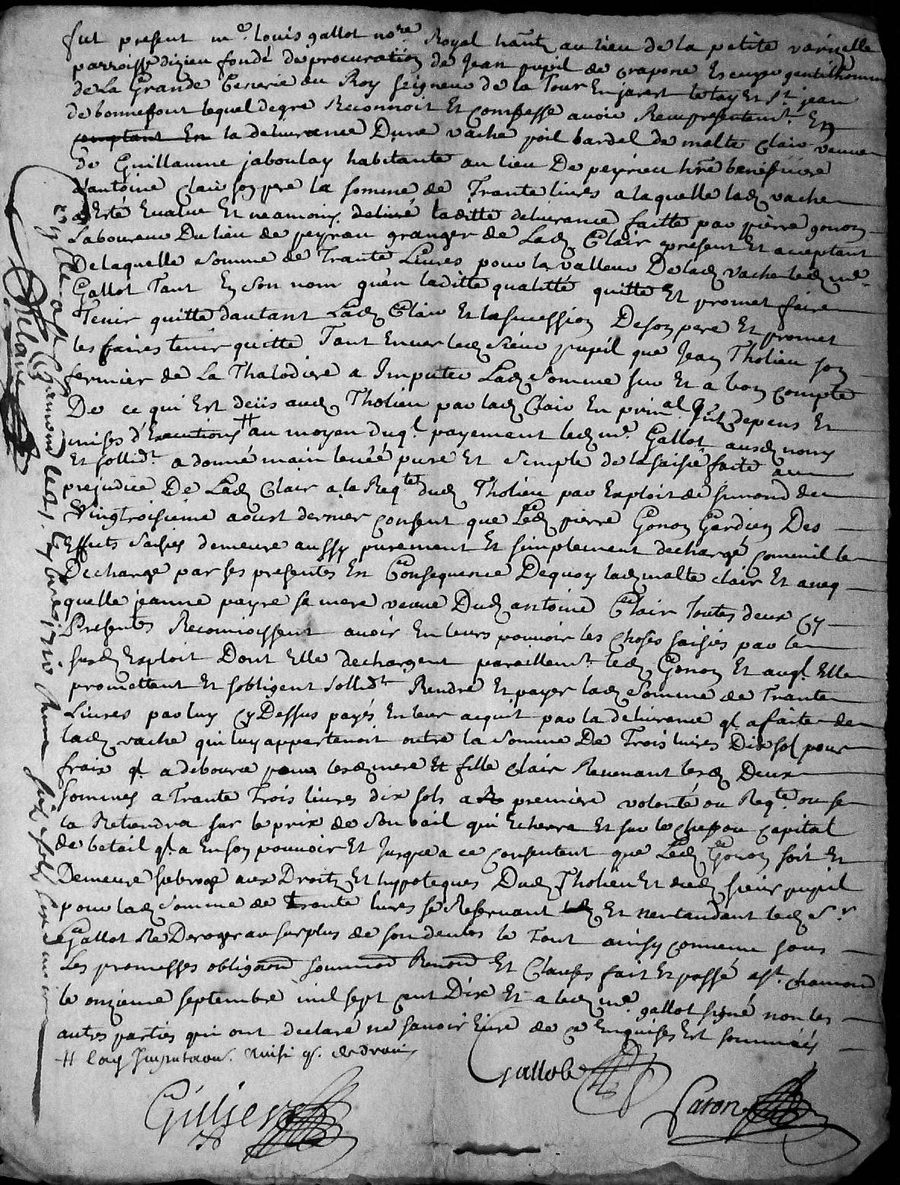 fut present me. louis gallot nore. Royal hantt. au lieu de la petite varizelle
parroisse dizieu fondé de procuration de Jean pupil de craponne Escuyer gentilhomme
de La Grande Venerie du Roy seigneur de la Tour En Jarest le fay et st jean
de bonnefont lequel de gre Reconnoit Et Confesse avoir Reçu presentemt. En
comptant En la delivrance Dune vache poil bardel de Clair veuve
de Guillaume jaboulay habitante au lieu De peyrieu benefiCiere
d'antoine Clair son pere la somme de Trante livres a laquelle lad vache
a Esté Evalue Et neamoins delivré laditte delivrance faitte par pierre gonon
Laboureur Du lieu de peyrau granger de Lad Clair present Et acceptant
De laquelle Somme de Trante Livres pour la valleur De lad vache led me.
Gallot Tant En Son nom qu'en laditte qualitté quitte Et promet faire
Tenir quitte dautant Lad Clair Et la succession De son pere Et promet
les faire tenir quitte Tant Envers led Sieur pupil que Jean Tholieu son
fermier de La Thalodiere a Imputer Lad Somme sur Et a bon compte
De ce qui Est deüs aud Tholieu par lad Clair En prinal. depens Et
d'Executions # au moyen duql. payement led me. Gallot ausd noms
Et sollidt. a donné main levée pure Et simple de la saisie faite au
prejudice De Lad Clair a la Reqte dud Tholieu par Exploit de simond du
Vingtroisieme aoust dernier consent que Led pierre Gonon Gardien Des
Effets saisis demeure aussy purement Et simplement dechargé comme il le
Decharge par ses presentes En Consequence Dequoy lad clair Et avec
quelle jeanne payre sa mere veuve Dud antoine Clair Toutes deux cy
Presentes Reconnoissent avoir En leurs pouvoir les choses saisies par le
susd Exploit Dont Elle dechargent pareillemt. led Gonon Et auql. Elle
promettent Et sobligent sollidt. Rendre Et payer lad Somme de Trante
Livres par luy cy Dessus payés En leur acquit par la delivrance ql. a faite de
lad vache qui luy appartenoit outre la Somme De Trois livres Dix sol pour
fraix ql. a debource pour lesd mere Et fille Clair Revenant lesd Deux
Sommes a Trante Trois livres dix sols a premiere volonté ou Reqte. ou se
la Retiendra sur le prix de Son bail qui Echerra Et sur le chesp ou Capital
de betail ql. a En son pouvoir Et Jusqua ce consentent que Led Gonon soit Et
Demeure subrogé aux Droits Et hypoteques Dud Tholieu Et dud sieur pupil
pour lad Somme de trante livres se Reservant Et nentendant led Sr.
Gallot Ne Deroger au surplus de son deub le Tout ainsy convenu sous
Les promesses obligaons soumions Renons Et Clauses fait Et passé a st. chamond
le onzieme septembre mil sept cent Dix Et a led me. gallot signé non les
autres parties qui ont declaré ne savoir Ecrire de ce Enquises Et sommées
# lad Imputaon. ainsi ql. de droit
Gallot
Gillier
Caron
Delavie